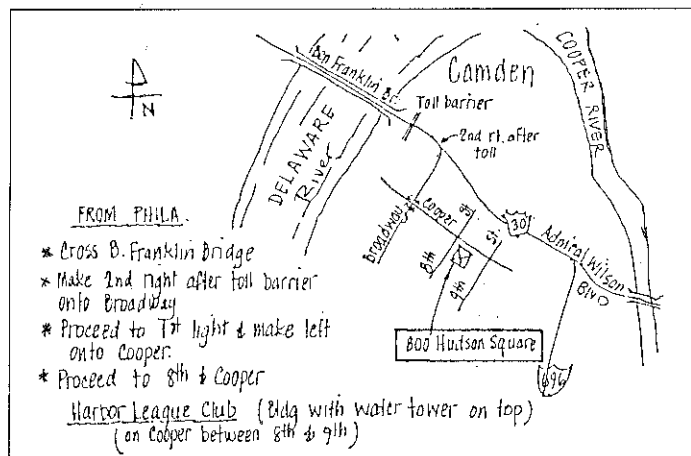 N
Ben Franklin Br.
Camden
COOPER RIVER
Toll barrier
2nd rt. after
toll
DELAWARE
River
Broadway
Cooper
8th
St.
9th
St.
30
Admiral Wilson
Blvd
800 Hudson Square
FROM PHILA.
* Cross B. Franklin Bridge
* Make 2nd right after toll barrier
onto Broadway
* Proceed to 1st light & make left
onto Cooper.
* Proceed to 8th & Cooper
Harbor League Club (Bldg with water tower on top)
(on Cooper between 8th & 9th)